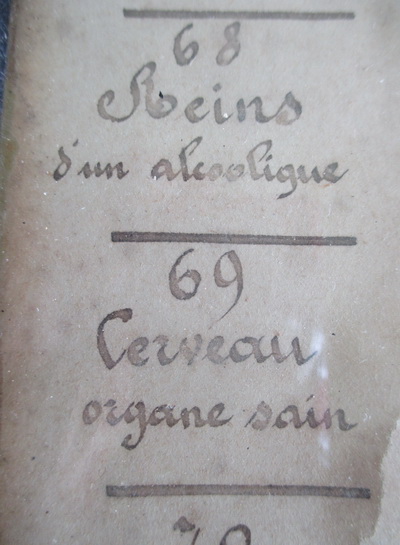 68
Reins
d'un alcoolique
69
Cerveau
organe sain
70